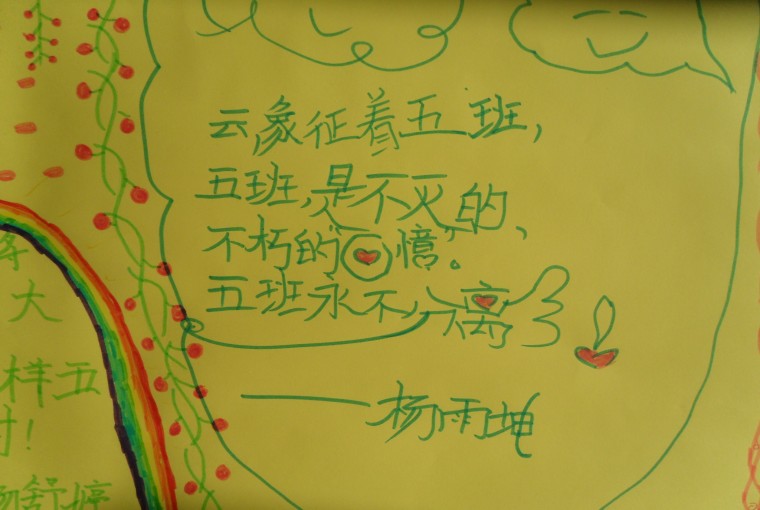 云象征着五班,
五班,是不灭的、
不朽的回憶。
五班永不分离
——杨雨坤
大
样五
时!
杨舒婷